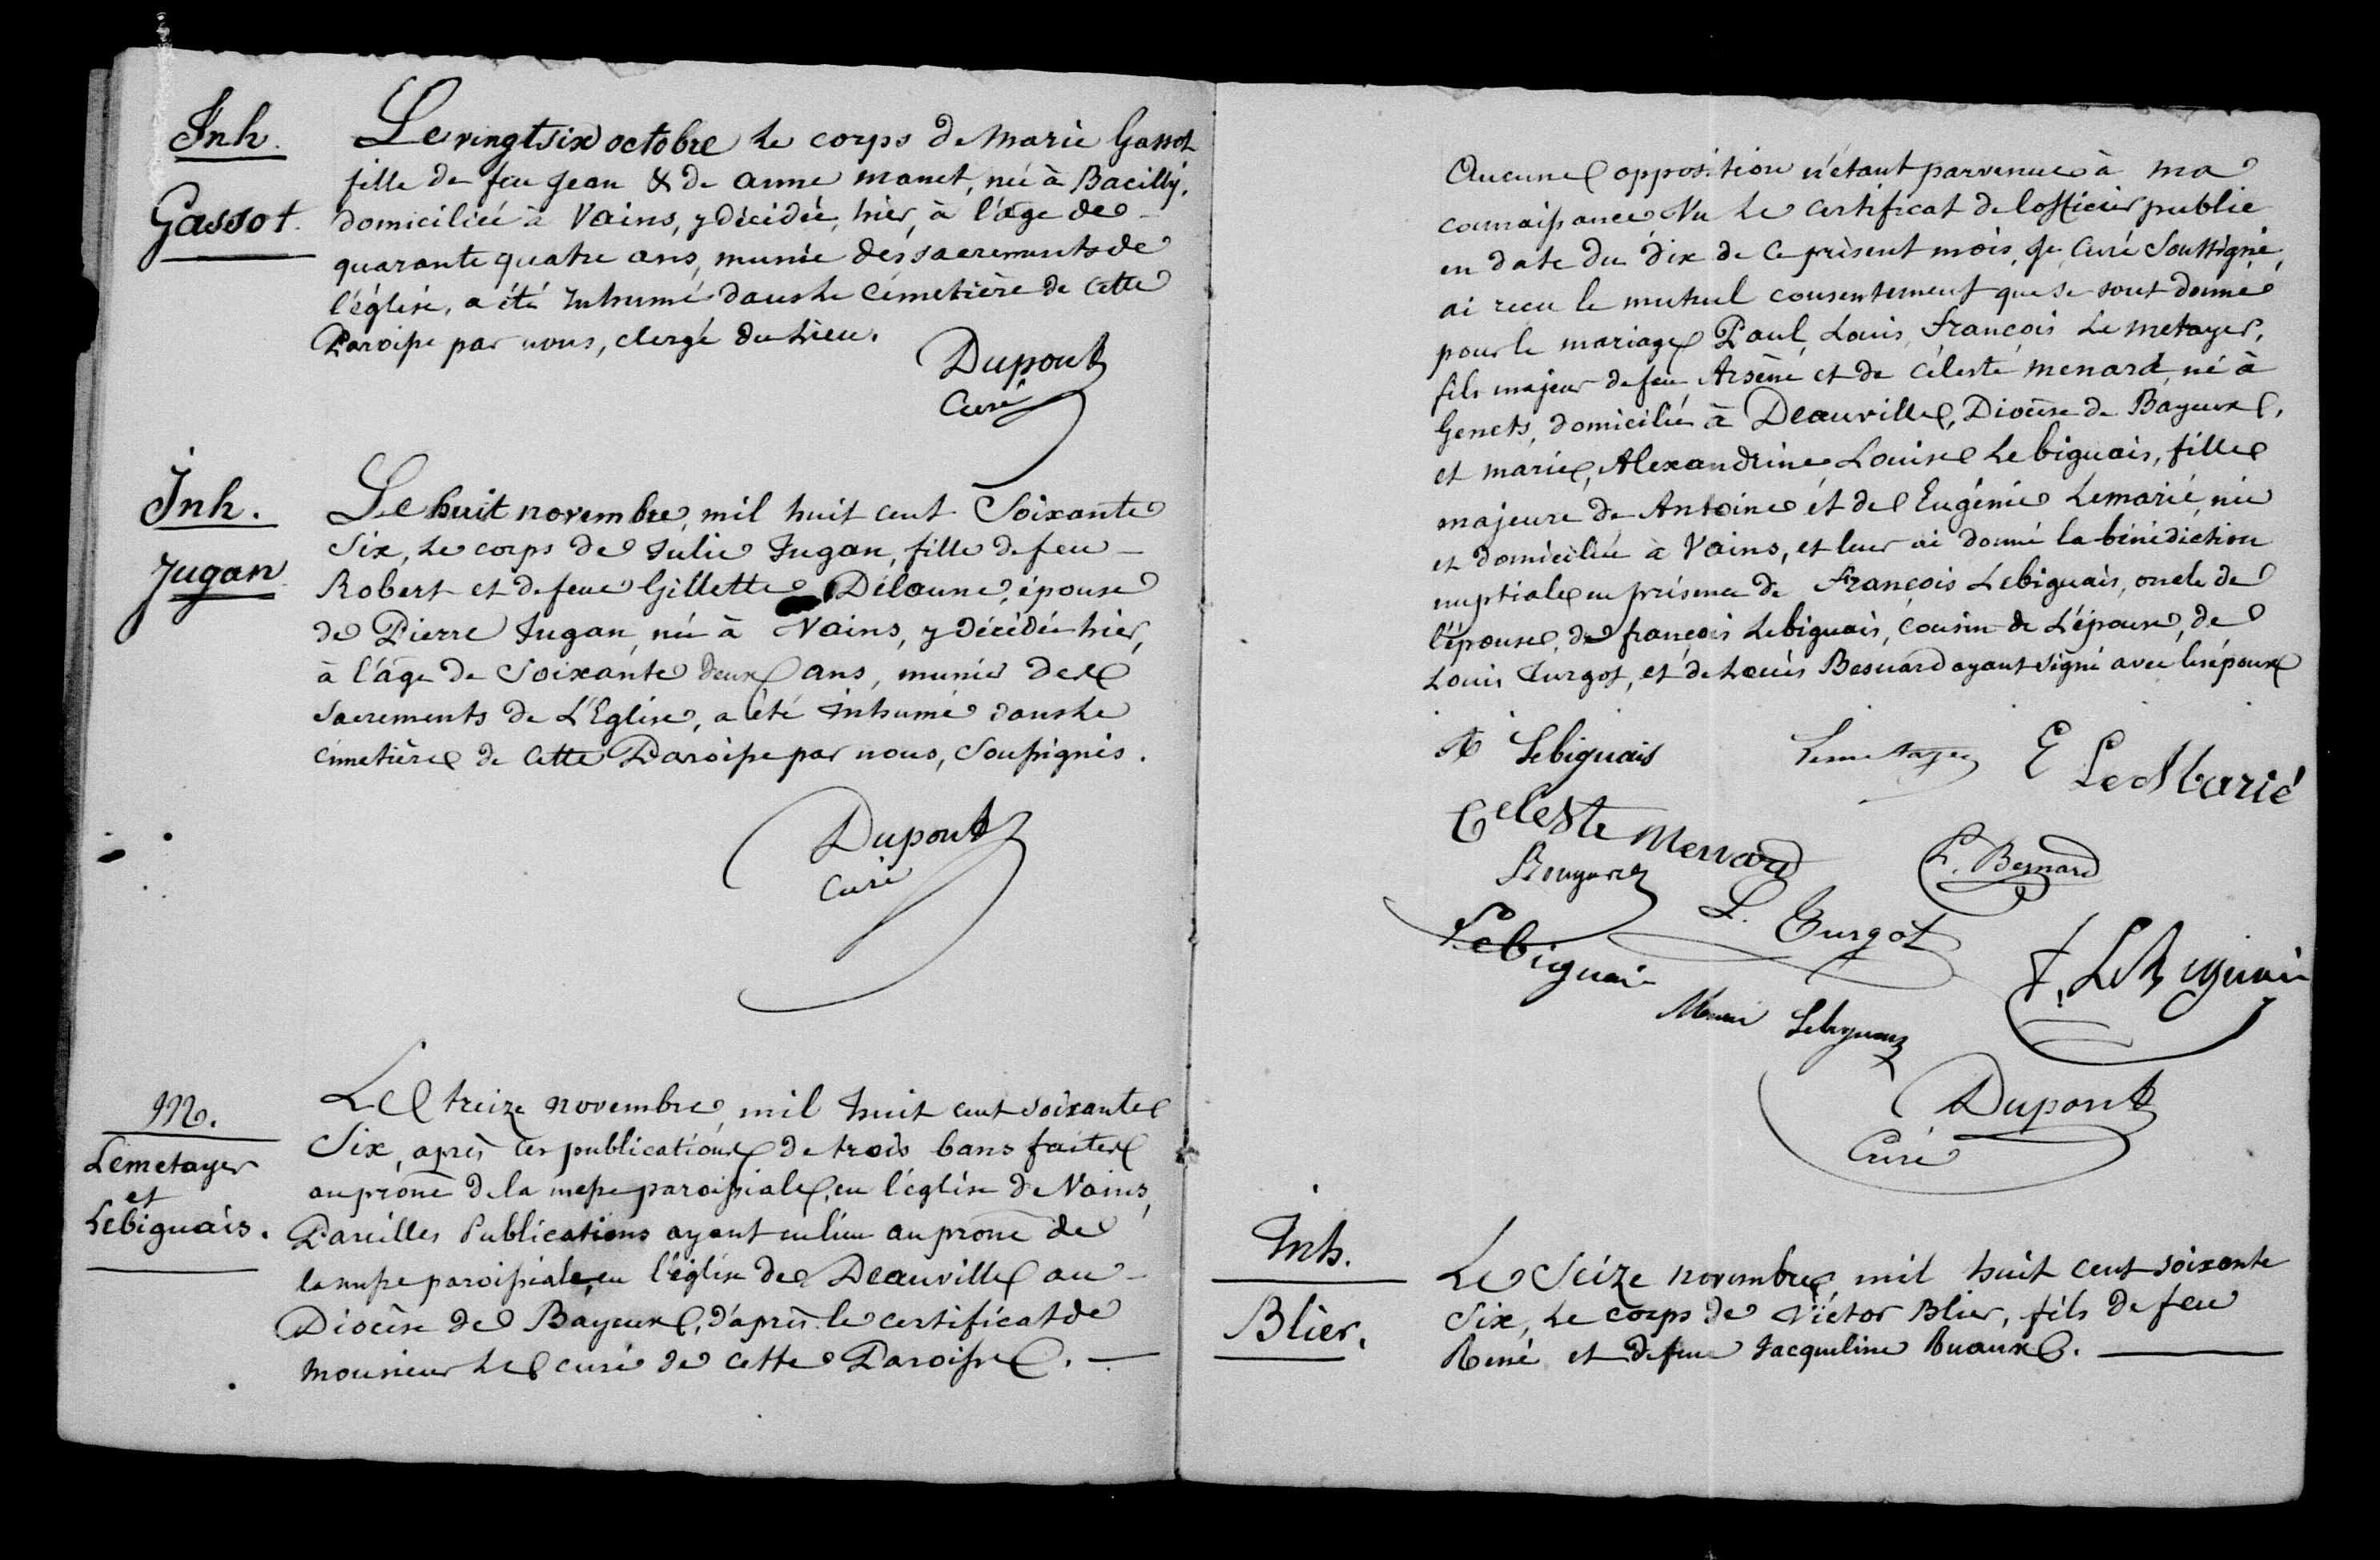 Inh.
Gassot.
Le vingt six octobre le corps de Marie Gassot
fille de feu Jean & de anne manet, née à Bacilly,
domiciliée à Vains, y décédée, hier, à l'âge de
quarante quatre ans, munie des sacrements de
l'église, a été Inhumé dans le Cimetière de Cette
Paroisse par nous, clergé du Lieu.
Dupont
Curé
Inh.
Jugan
Le huit novembre, mil huit cent Soixante
Six, le corps de Julie Jugan, fille de feu
Robert et de feue Gillette Delaune, épouse
de Pierre Jugan, née à Vains, y décédée hier,
à l'âge de Soixante deux ans, munie des
Sacrements de L'Eglise, a été Inhumé dans le
cimetière de Cette Paroisse par nous, Soussignés.
Dupont
Curé
M.
Lemetayer
et
Lebiguais.
Le treize novembre, mil huit cent soixante
Six, après les publications de trois bans faites
au prône de la messe paroissiale, en l'église de Vains,
Pareilles Publications ayant eu lieu au prône de
la messe paroissiale, en l'église de Deauville au
Diocèse de Bayeux, d'après le certificat de
monsieur Le curé de cette Paroisse.
Aucune opposition n'étant parvenue à ma
connaissance, Vu le Certificat de l'officier public
en date du dix de Ce présent mois, Je, Curé Soussigné,
ai recu le mutuel consentement que se sont donné
pour le mariage Paul, Louis, François Le metayer,
fils majeur de feu Arsène et de Céleste menard, né à
Genets, domicilié à Deauville, Diocèse de Bayeux,
et marie, Alexandrine Louise Le biguais, fille
majeure de Antoine et de Eugénie Lemarié, née
et domiciliée à Vains, et leur ai donné la bénédiction
nuptiale en présence de François Lebiguais, oncle de
l'épouse, de françois Lebiguais, Cousin de L'épouse, de
Louis Turgot, et de Louis Besnard ayant signé avec les époux
A Lebiguais Lemetayer E Le Marié
Celeste Menard
L. Besnard
L. Turgot
Lebiguais
F. Lebiguais
Lebiguais
Dupont
Curé
Inh.
Blier.
Le Seize novembre, mil huit cent soixante
Six, Le corps de Victor Blier, fils de feu
René et de feue Jacqueline Ruaux.